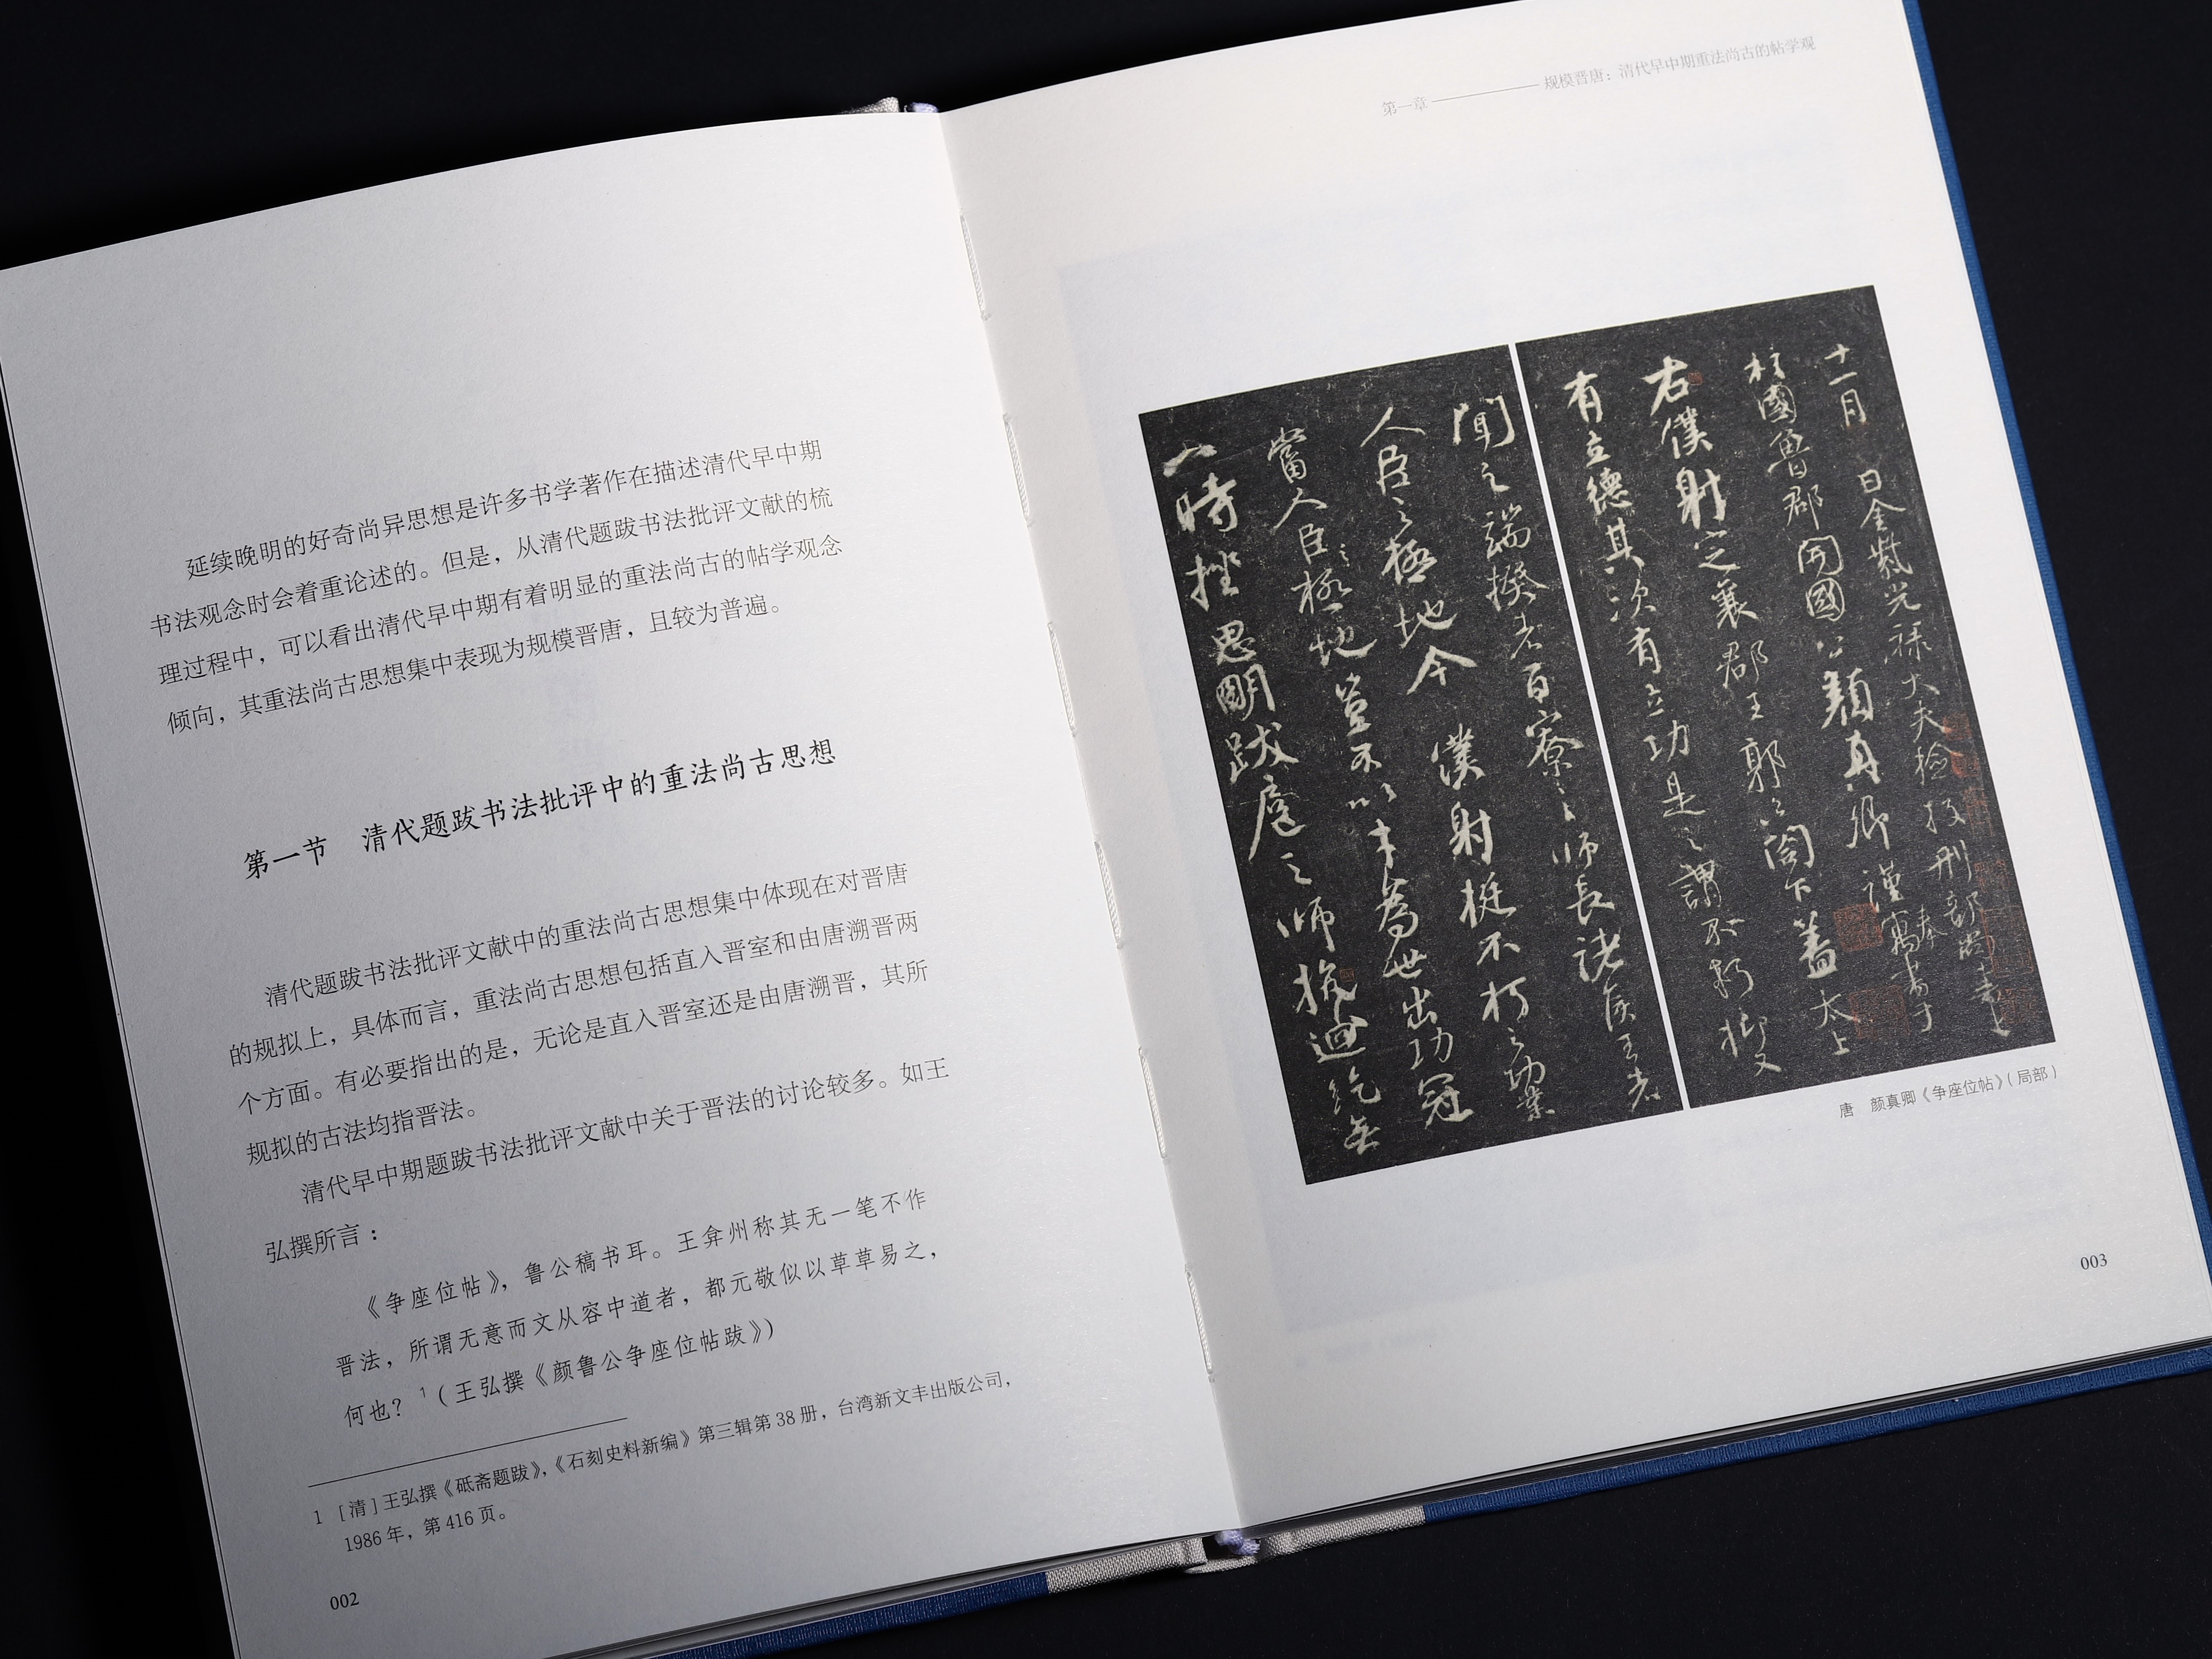 延续晚明的好奇尚异思想是许多书学著作在描述清代早中期
书法观念时会着重论述的。但是，从清代题跋书法批评文献的梳
理过程中，可以看出清代早中期有着明显的重法尚古的帖学观念
倾向，其重法尚古思想集中表现为规模晋唐，且较为普遍。
第一节　清代题跋书法批评中的重法尚古思想
清代题跋书法批评文献中的重法尚古思想集中体现在对晋唐
的规拟上，具体而言，重法尚古思想包括直入晋室和由唐溯晋两
个方面。有必要指出的是，无论是直入晋室还是由唐溯晋，其所
规拟的古法均指晋法。
清代早中期题跋书法批评文献中关于晋法的讨论较多。如王
弘撰所言：
《争座位帖》，鲁公稿书耳。王弇州称其无一笔不作
晋法，所谓无意而文从容中道者，都元敬似以草草易之，
何也？¹（王弘撰《颜鲁公争座位帖跋》）
1 ［清］王弘撰《砥斋题跋》，《石刻史料新编》第三辑第 38 册，台湾新文丰出版公司，
1986 年，第 416 页。
002
第一章 ———— 规模晋唐：清代早中期重法尚古的帖学观
十一月　日金紫光禄大夫檢挍刑部尚書上
柱國魯郡開國公顏真卿謹奉寓書于
右僕射定襄郡王郭公閤下蓋太上
有立德其次有立功是之謂不朽抑又
聞之端揆者百寮之師長諸侯王者
人臣之極地今僕射挺不朽之功業
當人臣之極地豈不以才為世出功冠
一時挫思明跋扈之師抗迴紇無
唐　颜真卿《争座位帖》（局部）
003